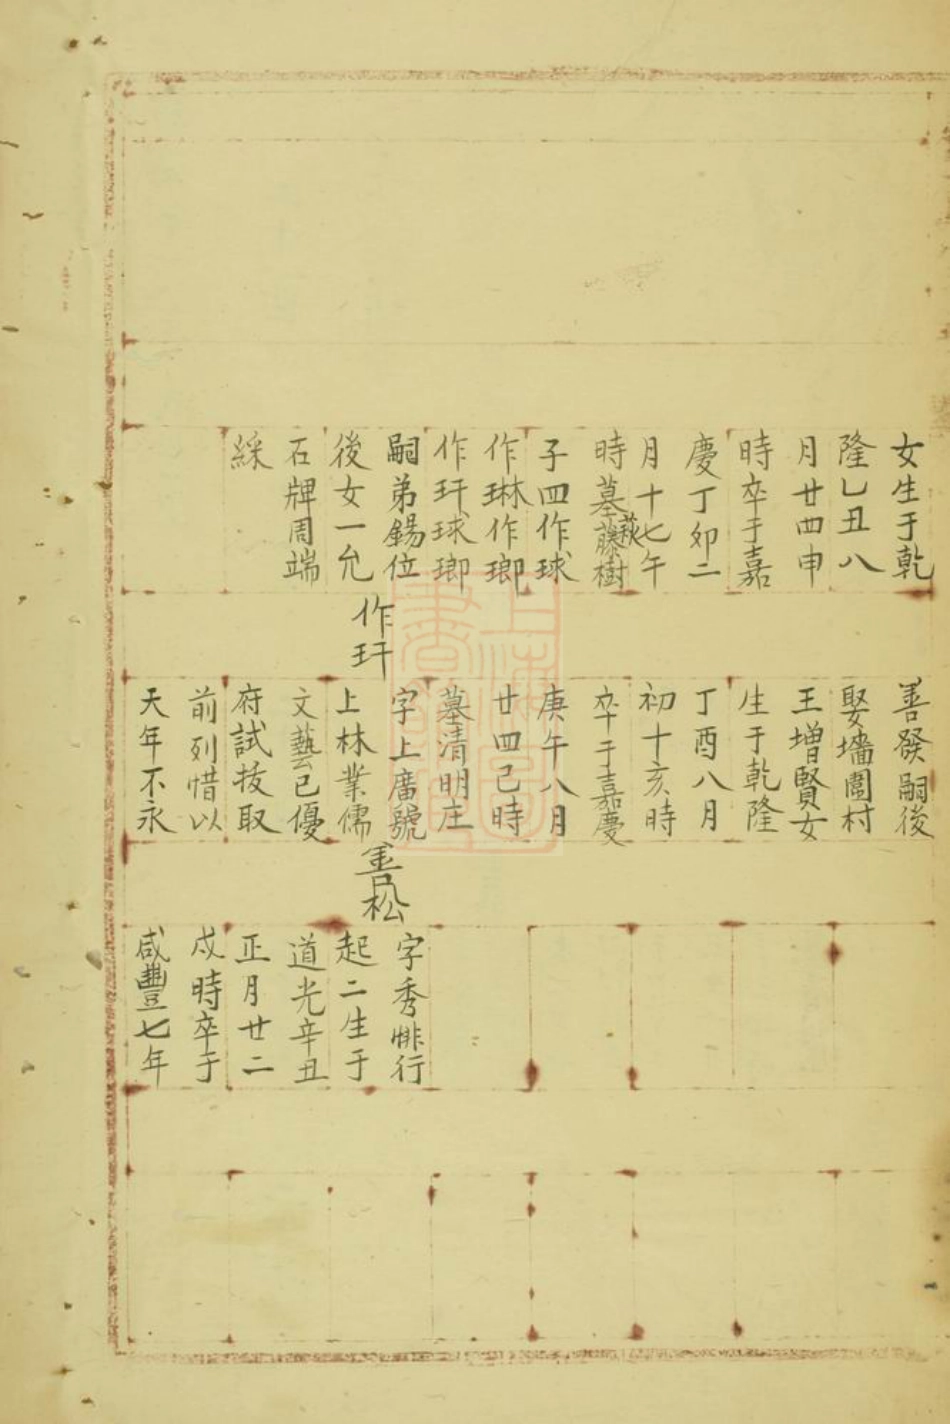 女生于乾
隆乙丑八
月廿四申
時卒于嘉
慶丁卯二
月十七午
時墓藤樹
荻
子四作球
作琳作瑯
作玕球瑯
嗣弟錫位
後女一允
石牌周端
綵
作玕
善發嗣後
娶墻圍村
王增賢女
生于乾隆
丁酉八月
初十亥時
卒于嘉慶
庚午八月
廿四巳時
墓清明庄
字上廣號
上林業儒
文藝已優
府試拔取
前列惜以
天年不永
善松
字秀悱行
起二生于
道光辛丑
正月廿二
戍時卒于
咸豐七年